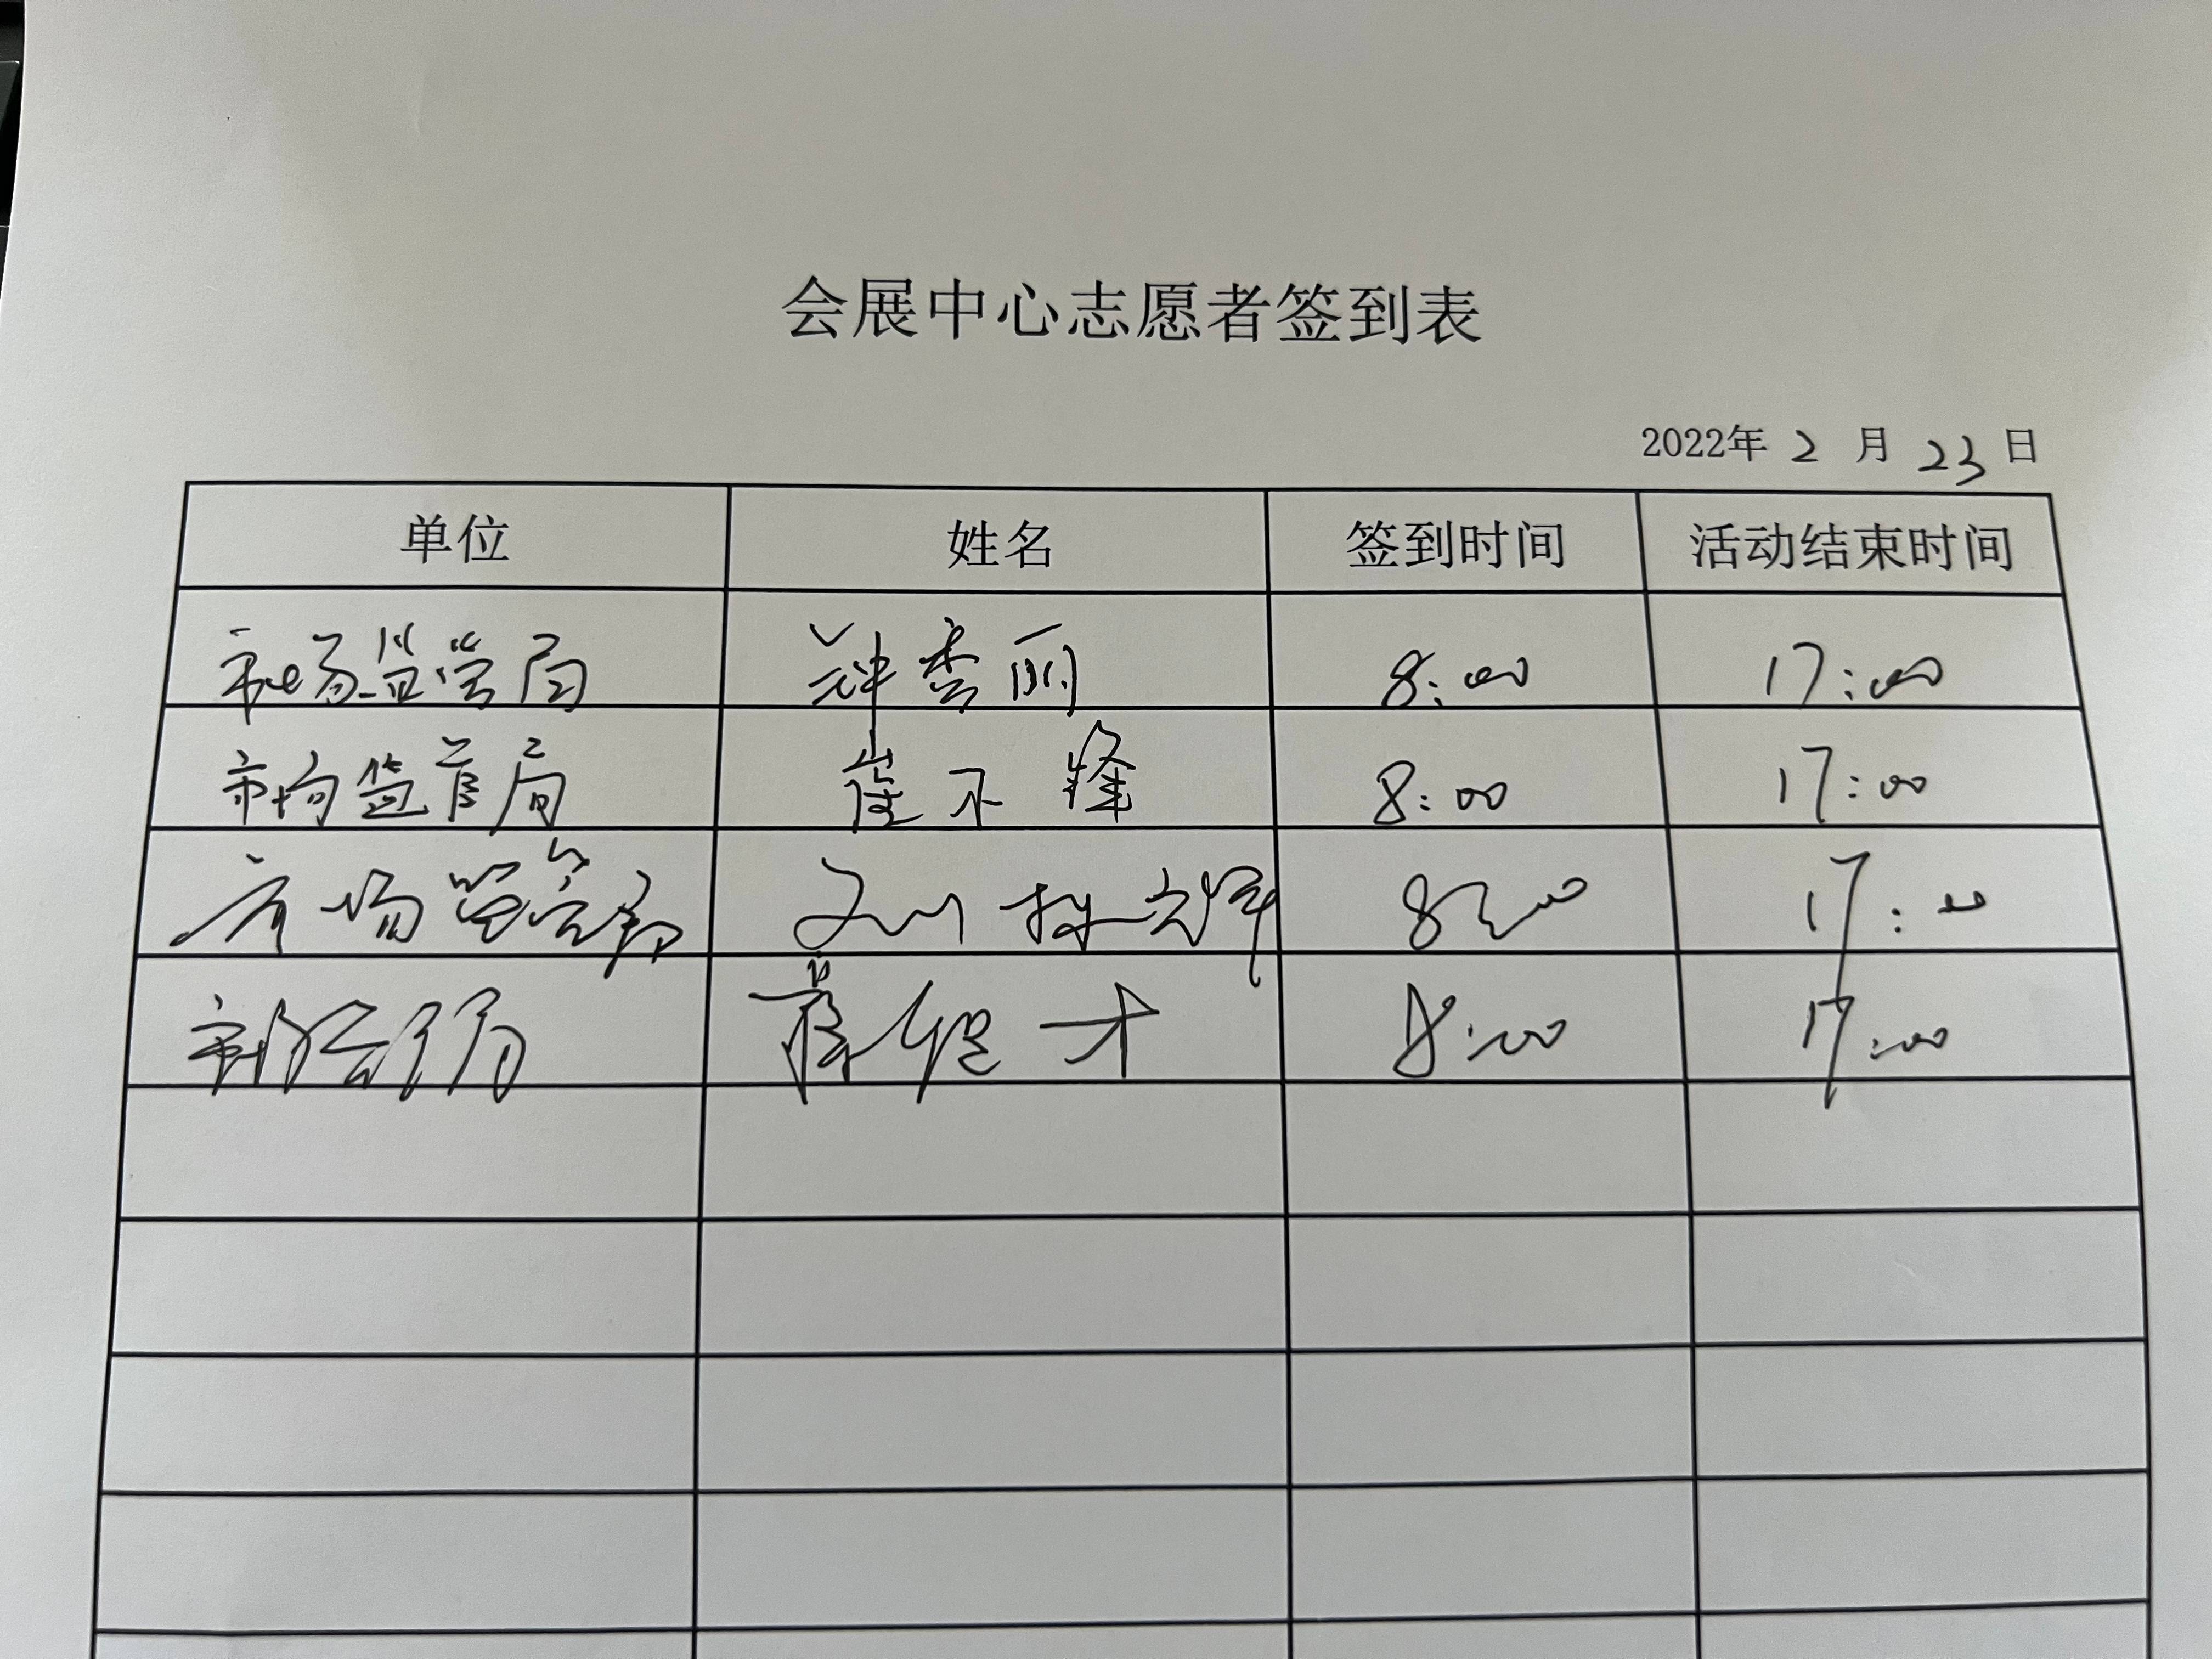 会展中心志愿者签到表
2022年 2 月 23 日
单位 姓名 签到时间 活动结束时间
市场监管局 8:00 17:00
市场监管局 崔不锋 8:00 17:00
市场监管局 8:00 17:00
才 8:00 17:00